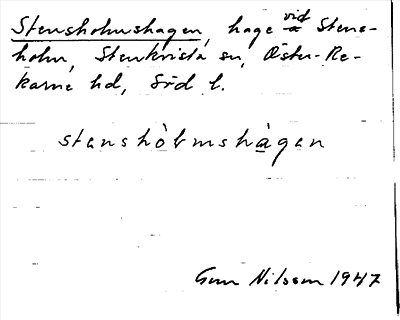 Stensholmshagen, hage vid Stens-
holm, Stenkvista sn, Öster-Re-
karne hd, Söd l.
stenshòlmshàgan
Gun Nilsson 1947